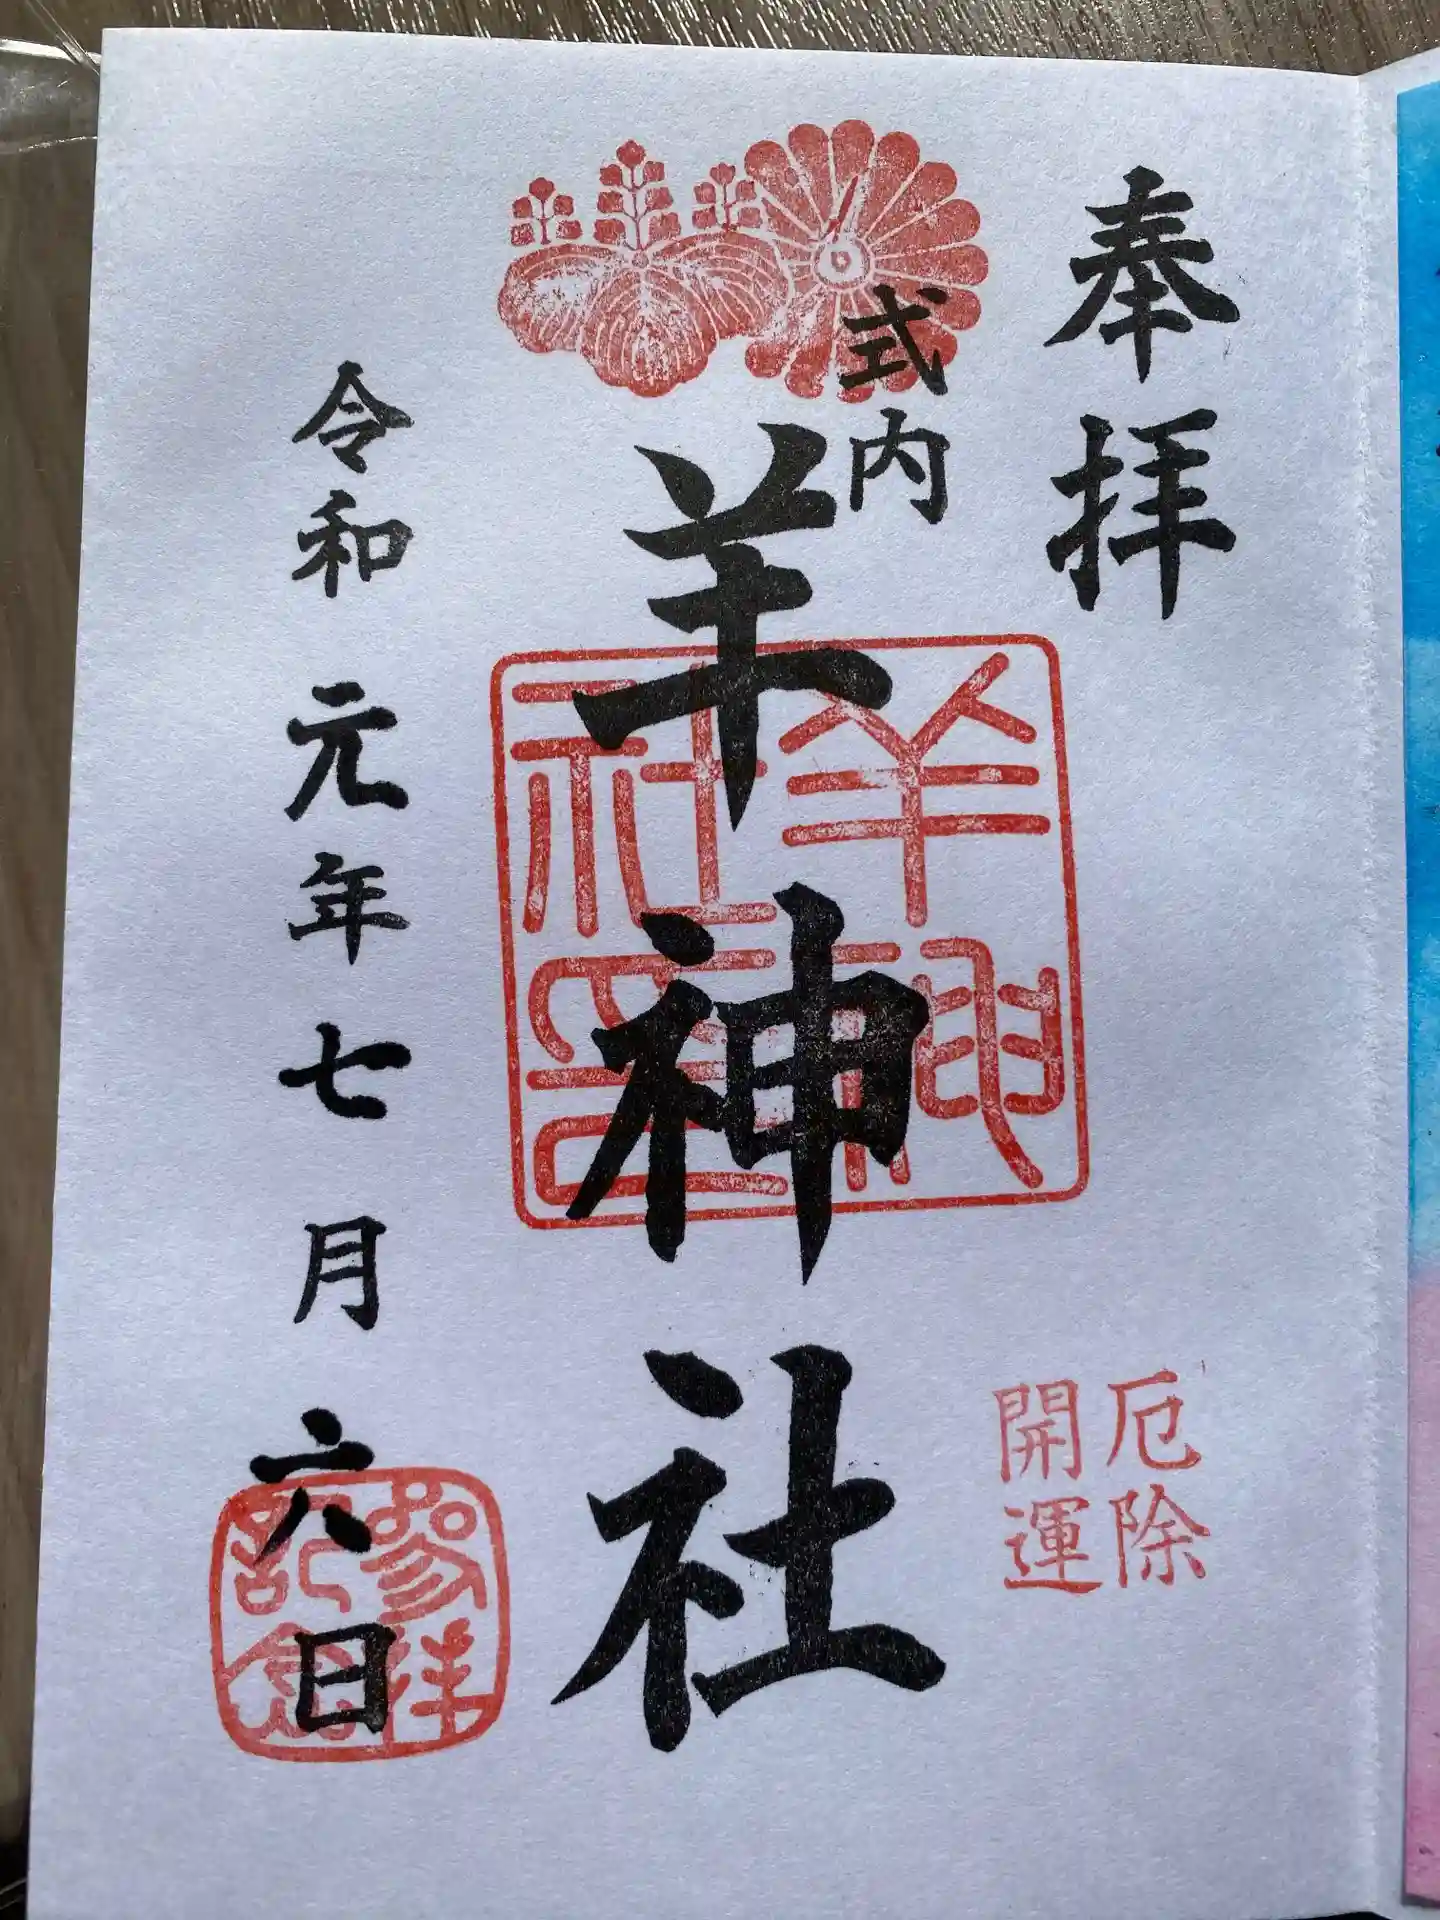 奉拝
式内
羊神社
羊神社印
厄除
開運
令和元年七月六日
参拝
記念